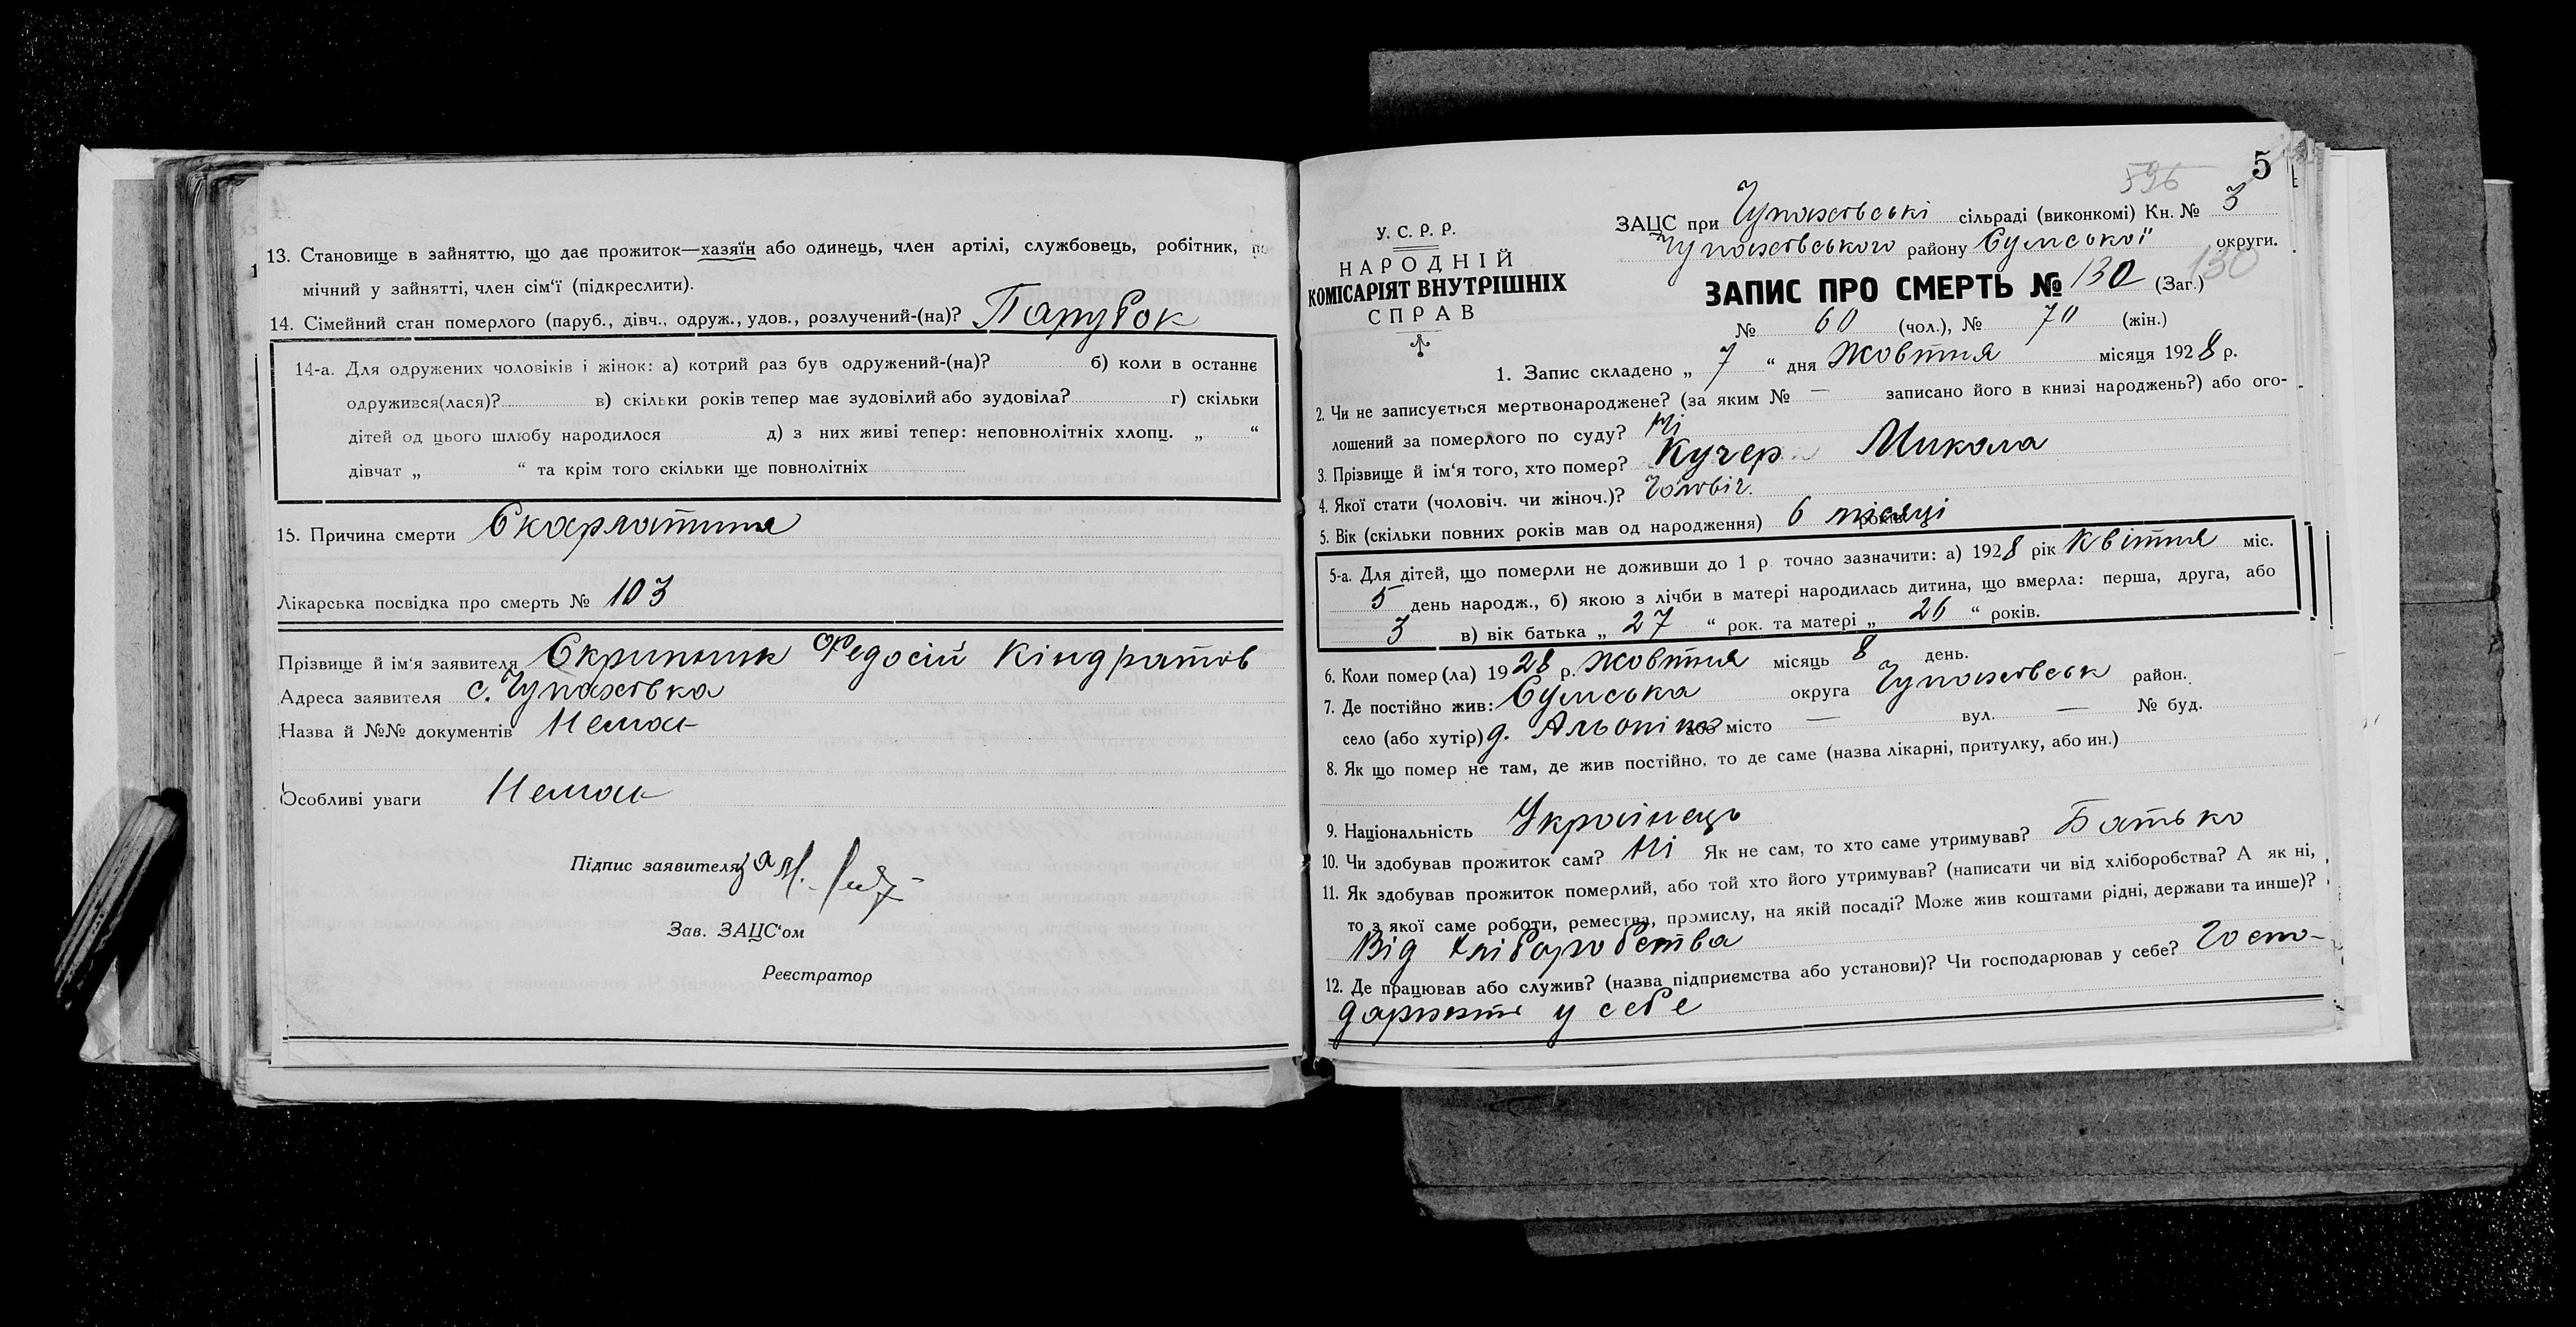 13. Становище в зайняттю, що дає прожиток—хазяїн або одинець, член артілі, службовець, робітник, по
мічний у зайнятті, член сім‘ї (підкреслити).
14. Сімейний стан померлого (паруб., дівч., одруж., удов., розлучений-(на)? Парубок
14-а. Для одружених чоловіків і жінок: а) котрий раз був одружений-(на)? б) коли в останнє
одружився(лася)? в) скільки років тепер має зудовілий або зудовіла? г) скільки
дітей од цього шлюбу народилося д) з них живі тепер: неповнолітніх хлопц. „ “
дівчат „ “ та крім того скільки ще повнолітніх
15. Причина смерти Скарлатина
Лікарська посвідка про смерть № 103
Прізвище й ім‘я заявителя Скрипник Федосій Кіндратов
Адреса заявителя с. Чупаховка
Назва й №№ документів Немає
Особливі уваги Немає
Підпис заявителя за
Зав. ЗАЦС‘ом
Реєстратор
5
596
У. С. Р. Р.
НАРОДНІЙ
КОМІСАРІЯТ ВНУТРІШНІХ
СПРАВ
ЗАЦС при Чупаховські сільраді (виконкомі) Кн. № 3
Чупаховського району Сумської округи.
ЗАПИС ПРО СМЕРТЬ № 130 (Заг.) 130
№ 60 (чол.), № 70 (жін.)
1. Запис складено „ 7 “ дня Жовтня місяця 1928 р.
2. Чи не записується мертвонароджене? (за яким № — записано його в книзі народжень?) або ого-
лошений за померлого по суду? Ні
3. Прізвище й ім‘я того, хто помер? Кучер Микола
4. Якої стати (чоловіч. чи жіноч.)? Чоловіч.
5. Вік (скільки повних років мав од народження) 6 місяці років
5-а. Для дітей, що померли не доживши до 1 р. точно зазначити: а) 1928 рік Квітня міс.
5 день народж., б) якою з лічби в матері народилась дитина, що вмерла: перша, друга, або
3 в) вік батька „ 27 “ рок. та матері „ 26 “ років.
6. Коли помер(ла) 1928 р. Жовтня місяць 8 день.
7. Де постійно жив: Сумська округа Чупаховськ район.
село (або хутір) д. або місто — вул. — № буд.
8. Як що помер не там, де жив постійно, то де саме (назва лікарні, притулку, або ин.)
9. Національність Українець
10. Чи здобував прожиток сам? Ні Як не сам, то хто саме утримував? Батько
11. Як здобував прожиток померлий, або той хто його утримував? (написати чи від хліборобства? А як ні,
то з якої саме роботи, ремества, промислу, на якій посаді? Може жив коштами рідні, держави та инше)?
Від хліборобства
12. Де працював або служив? (назва підприємства або установи)? Чи господарював у себе? Госпо-
у себе